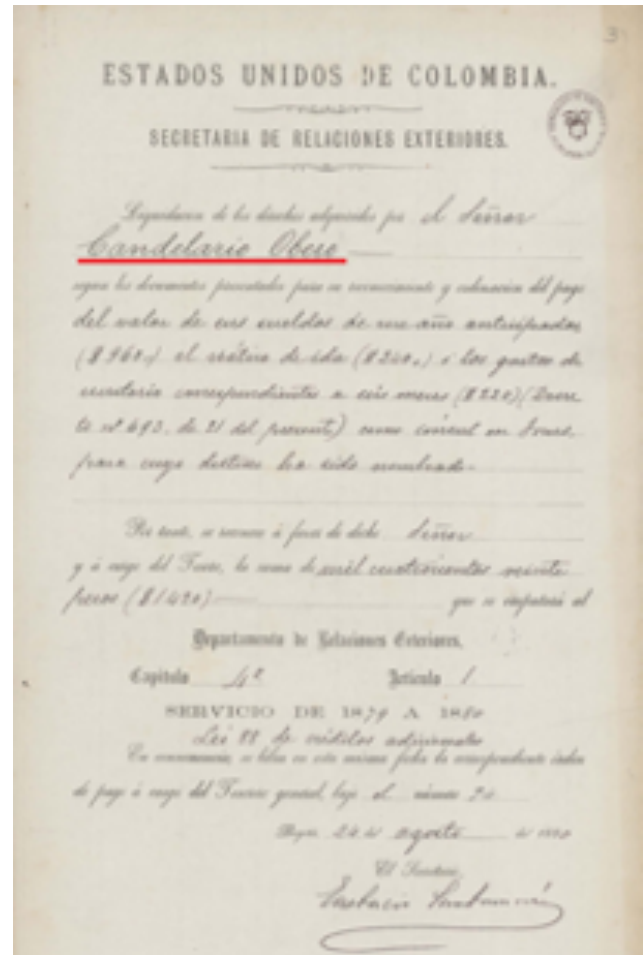 3
ESTADOS UNIDOS DE COLOMBIA.
SECRETARIA DE RELACIONES EXTERIORES.
Liquidacion de los derechos adquiridos por el Señor
Candelario Obeso
segun los documentos presentados para su reconocimiento y ordenacion del pago
del valor de sus sueldos de un año anticipados
($960,) el viático de ida ($240,) i los gastos de
escritorio correspondientes a seis meses ($220) (Decre
to nº 493, de 21 del presente) como consul en Tours,
para cuyo destino ha sido nombrado.
Por tanto, se reconoce á favor de dicho Señor
y á cargo del Tesoro, la suma de mil cuatrocientos veinte
pesos ($1420) que se imputará al
Departamento de Relaciones Exteriores,
Capítulo 4º Artículo 1
SERVICIO DE 1879 A 1880
Lei 88 de créditos adicionales
En consecuencia, se libra en esta misma fecha la correspondiente órden
de pago á cargo del Tesorero general, bajo el número 20
24 de agosto de 1880
El Secretario,